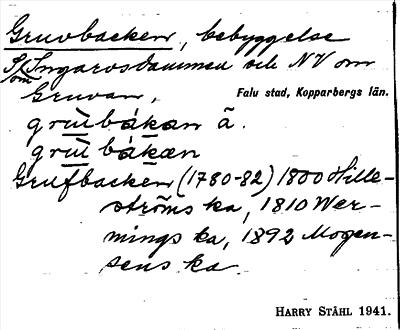 Gruvbacken, bebyggelse
S om Ingarvsdammen och NV om
Gruvan,
Falu stad, Kopparbergs län.
grùbákan ä.
grùbákæn
Grufbacken (1780-82) 1800 Hille-
ströms ka, 1810 Wer-
mings ka, 1892 Mogen-
sens ka
HARRY STÅHL 1941.